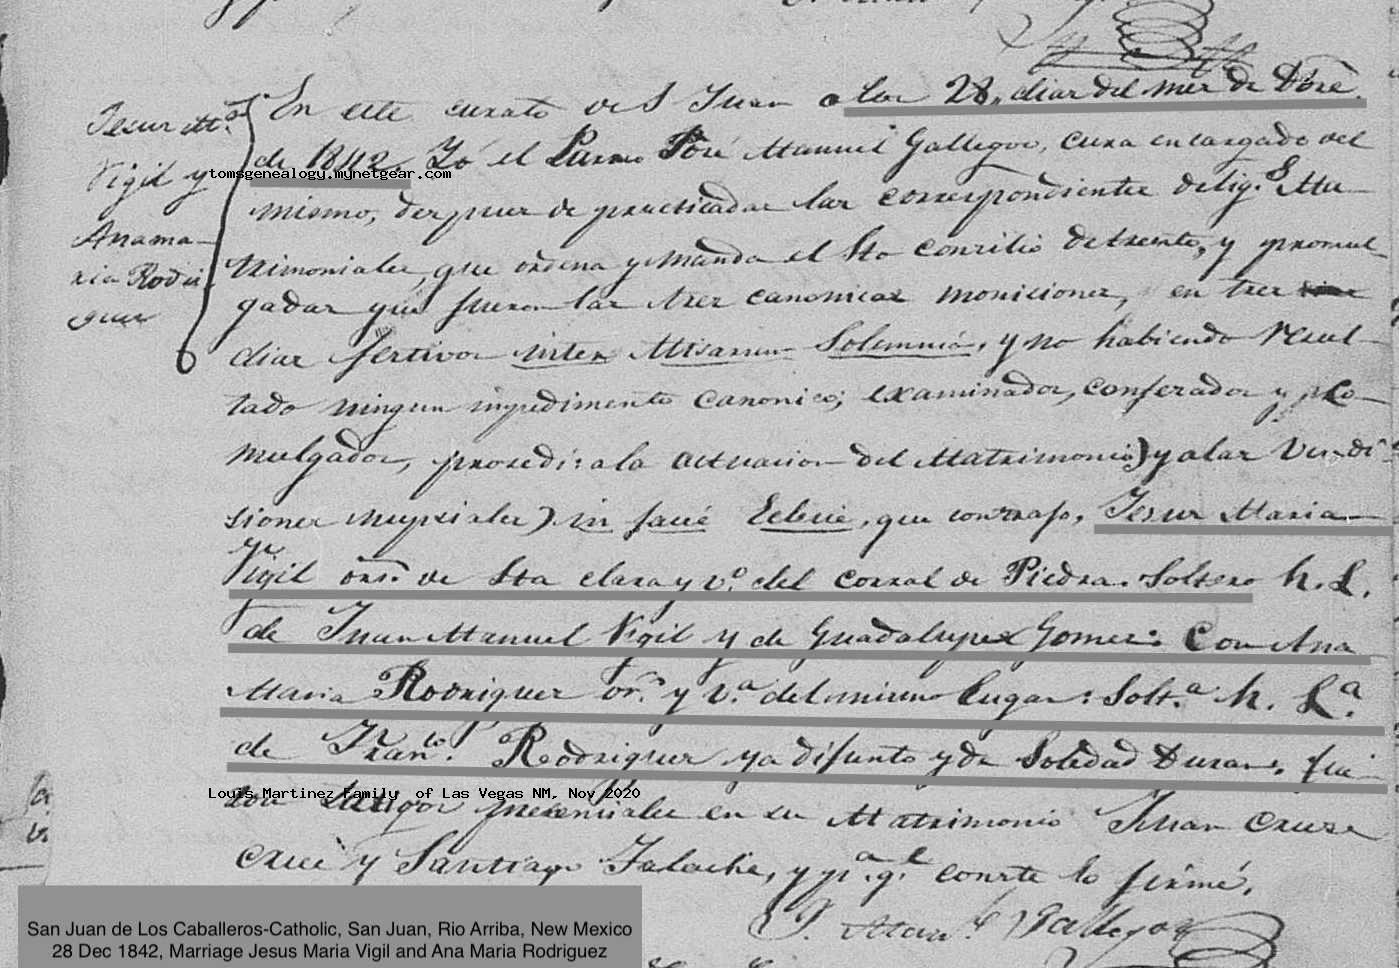 Jesus Ma.
Vigil y
Anama-
ria Rodri-
gues
En este curato de S Juan a los 28, dias del mes de Dbre.
de 1842. Yó el Presvo José Manuel Gallegos, cura encargado del
tomsgenealogy.mynetgear.com
mismo, despues de practicadas las correspondientes delig.s Ma-
trimoniales, que ordena y manda el Sto consilio de trento, y promul-
gadas que fueron las tres canonicas moniciones, en tres
dias festivos inter Misarum Solemnia, y no habiendo resul-
tado ningun inpedimento canonico; examinados, confesados y pro-
mulgados, prosedi: a la actuacion del Matrimonio) y a las vendi-
siones nupsiales) in facié Eclecie, que contrajo, Jesus Maria
Vigil ori. de Sta clara y v.o del corral de Piedra. Soltero h. L.
de Juan Manuel Vigil y de Guadalupe Gomes: Con Ana
Maria Rodrigues or.a y v.a del mismo lugar: Solt.a h. L.a
de Fran.co Rodrigues ya difunto y de Soledad Duran. fue-
ron testigos presensiales en su Matrimonio Juan
Louis Martinez Family of Las Vegas NM, Nov 2020
y Santiago y p.a q.e conste lo firmé.
J. Man.l Gallegos
San Juan de Los Caballeros-Catholic, San Juan, Rio Arriba, New Mexico
28 Dec 1842, Marriage Jesus Maria Vigil and Ana Maria Rodriguez